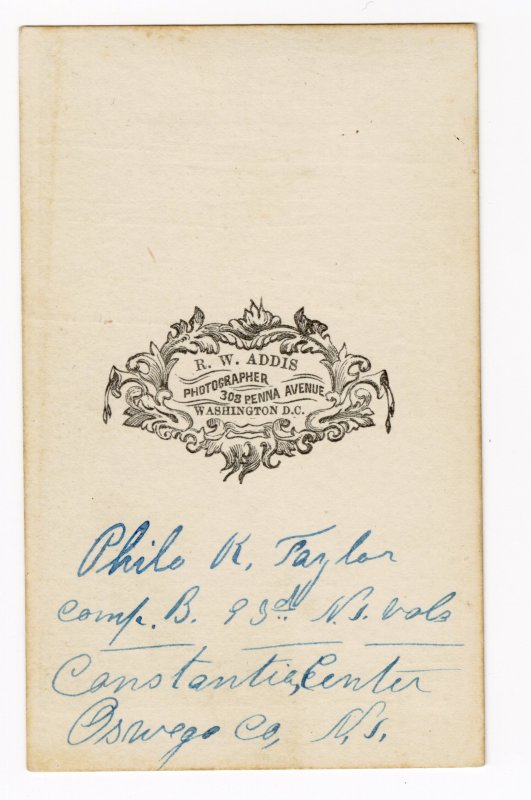 R. W. ADDIS
PHOTOGRAPHER
308 PENNA AVENUE
WASHINGTON D.C.
Philo K. Taylor
comp. B. 93d N.Y. vols
Constantia, Center
Oswego Co, N.Y.